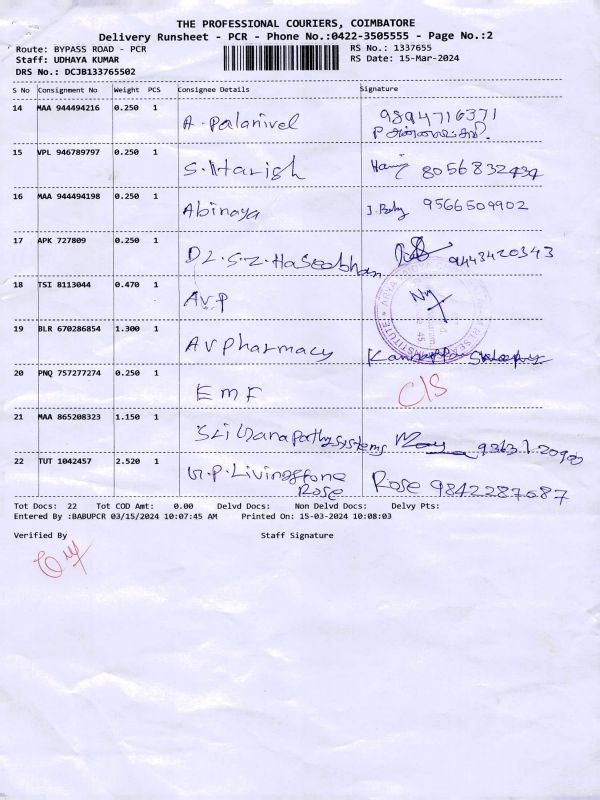 THE PROFESSIONAL COURIERS, COIMBATORE
Delivery Runsheet - PCR - Phone No.:0422-3505555 - Page No.:2
Route: BYPASS ROAD - PCR RS No.: 1337655
Staff: UDHAYA KUMAR RS Date: 15-Mar-2024
DRS No.: DCJB133765502
S No Consignment No Weight PCS Consignee Details Signature
14 MAA 944494216 0.250 1 A. Palanivel 9894716371
15 VPL 946789797 0.250 1 S. Harish 8056832434
16 MAA 944494198 0.250 1 Abinaya J. Baby 9566509902
17 APK 727809 0.250 1 9443420343
18 TSI 8113044 0.470 1 AVP
19 BLR 670286854 1.300 1 AV Pharmacy
20 PNQ 757277274 0.250 1 EMF C/S
21 MAA 865208323 1.150 1 Sri Ganapathy Systems
22 TUT 1042457 2.520 1 G.P. Livingstone Rose 9842287687
Rose
Tot Docs: 22 Tot COD Amt: 0.00 Delvd Docs: Non Delvd Docs: Delvy Pts:
Entered By :BABUPCR 03/15/2024 10:07:45 AM Printed On: 15-03-2024 10:08:03
Verified By Staff Signature